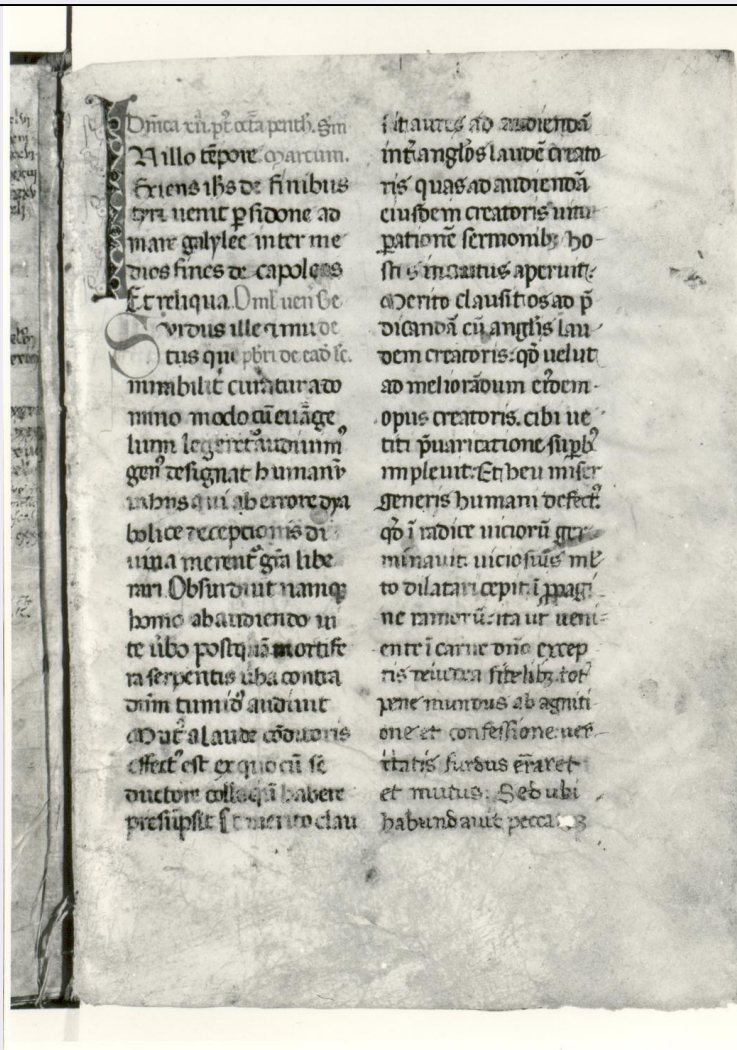 Dn̄ica xii. pt̄ octā penth̄. Sm̄
IN illo tēpore. Marcum.
Exiens ih̄s de finibus
tyri uenit ꝑ sidone ad
mare galylee inter me
dios fines decapoleos
Et reliqua. Oml̄ uen̄ Be
Surdus ille ⁊ mu de
tus qui pb̄ri de ead̄ lc̄.
mirabilit̄ curatur a do
mino modo cū euāge
lium legeret̄ audiuim᾿
gen᾿ designat humanū
in his qui ab errore dya
bolice deceptionis di
uina merent᾿ gr̄a libe
rari. Obsurduit namq;
homo ab audiendo ui
te ūbo postquā mortife
ra serpentis ūba contra
dn̄m tumid᾿ audiuit
Mut᾿ a laude cōditoris
effect᾿ est ex quo cū se
ductore colloquiū habere
presūpsit. Et merito clau
sit aures ad audiendā
int̄ angl̄os laudē creato
ris quas ad audiendā
eiusdem creatoris uitu
ꝑationē sermonib; ho
stis incautus aperuit.
Merito clausit os ad p̄
dicandā cū angl̄is lau
dem creatoris. qd̄ uelut
ad meliorādum eidem
opus creatoris. cibi ue
titi p̄uaricatione suꝑb᾿
impleuit. Et heu miser
generis humani defect᾿.
qd̄ ī radice uiciorū ger
minauit. uiciosius ml̄
to dilatari cepit. ī ꝓpagi
ne ramorū. ita ut ueni
ente ī carne dn̄o excep
tis de iudea fidelib; tot᾿
pene mundus ab agniti
one et confessione uer
itatis surdus ērraret
et mutus. Sed ubi
habundauit pecca